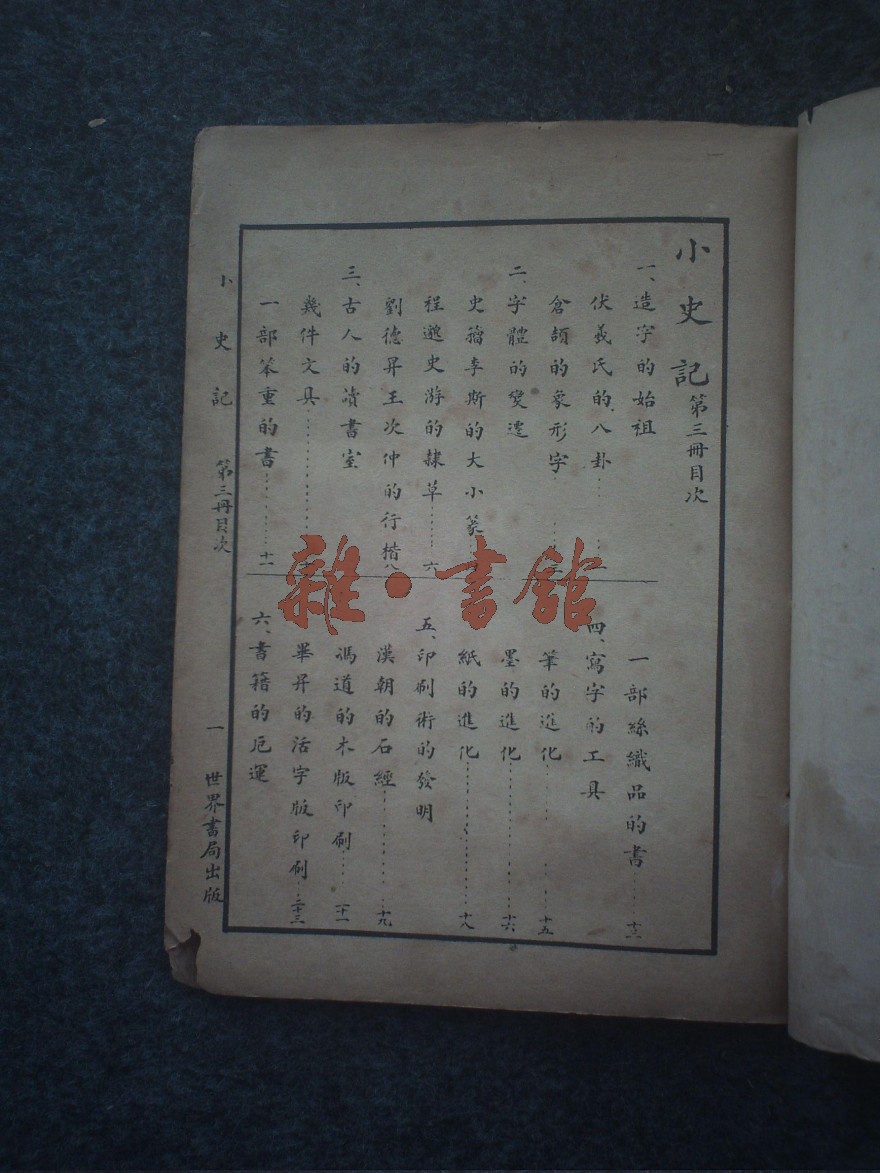 小史記第三冊目次
一、造字的始祖
伏羲氏的八卦......一
倉頡的象形字......三
二、字體的變遷
史籀李斯的大小篆
程邈史游的隸草......六
劉德昇王次仲的行楷八
三、古人的讀書室
幾件文具......
一部笨重的書......十一
一部絲織品的書......十三
四、寫字的工具
筆的進化......十五
墨的進化......十六
紙的進化......十八
五、印刷術的發明
漢朝的石經......十九
馮道的木版印刷......二十一
畢昇的活字版印刷...二十三
六、書籍的厄運
小史記 第三冊目次 一 世界書局出版
雜·書館